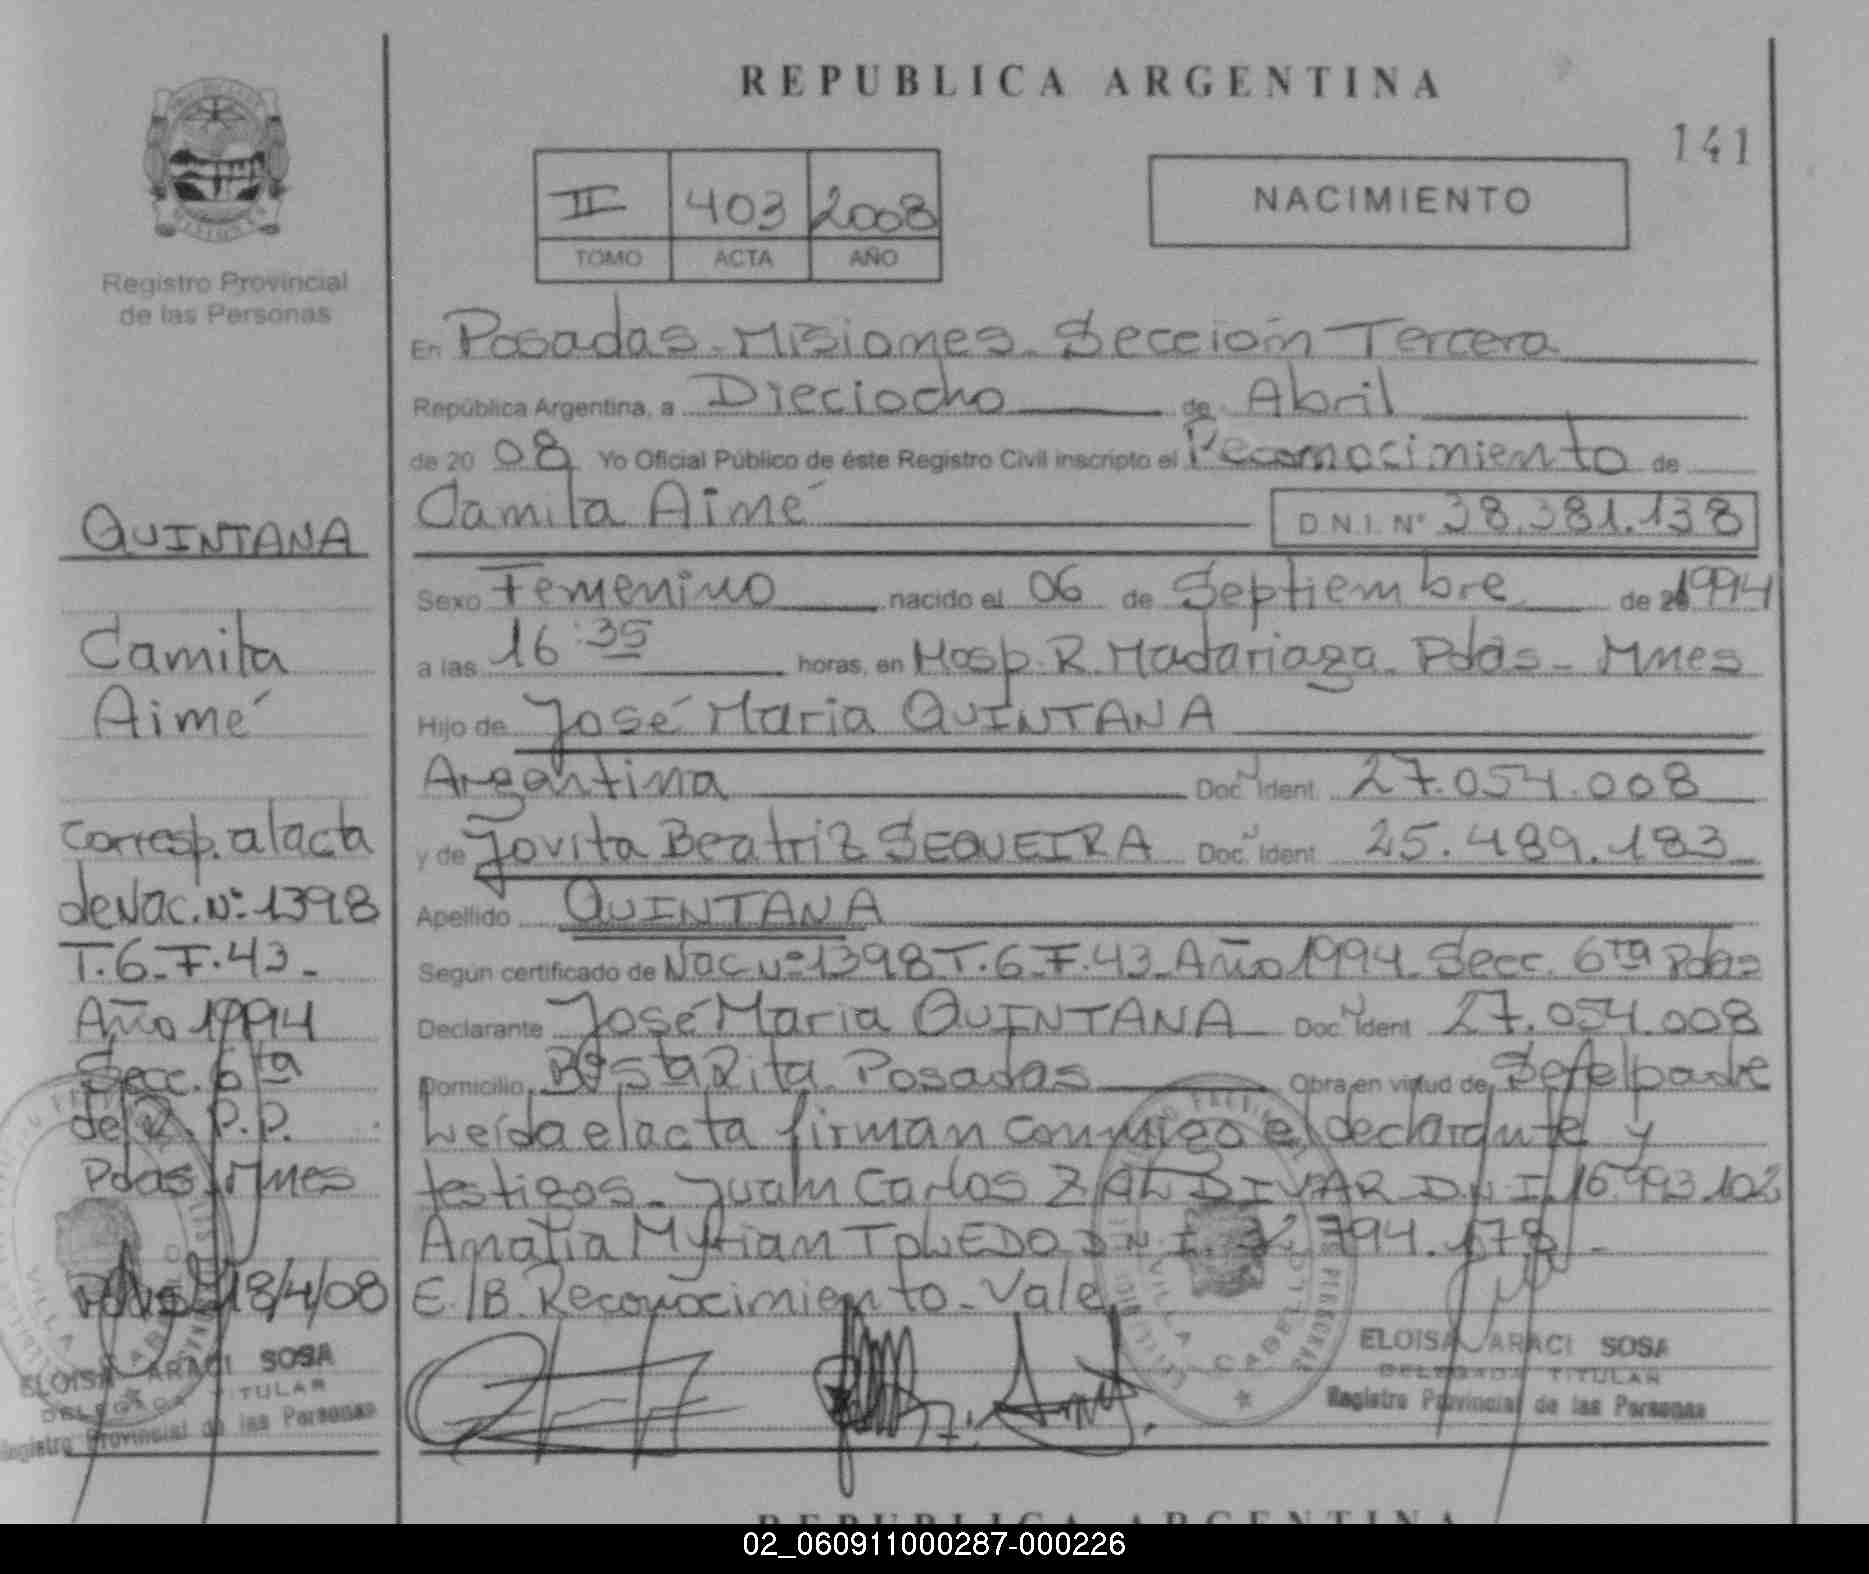 REPUBLICA ARGENTINA
141
II 403 2008
TOMO ACTA AÑO
NACIMIENTO
Registro Provincial
de las Personas
QUINTANA
Camila
Aimé
Corresp. al acta
de Nac. Nº 1398
T. 6 - F. 43 -
Año 1994
Secc. 6ta
del R. P. P.
Pdas Mnes
Pdas 18/4/08
ELOISA ARACI SOSA
DELEGADA TITULAR
Registro Provincial de las Personas
En Posadas - Misiones - Sección Tercera
República Argentina, a Dieciocho de Abril
de 20 08 Yo Oficial Público de éste Registro Civil inscripto el Reconocimiento de
Camila Aimé D.N.I. Nº 38.381.138
Sexo Femenino nacido el 06 de Septiembre de 1994
a las 16:35 horas, en Hosp. R. Madariaga - Pdas - Mnes
Hijo de José Maria QUINTANA
Argentina Doc. Ident. 27.054.008
y de Jovita Beatriz SEQUEIRA Doc. Ident. 25.489.183
Apellido QUINTANA
Según certificado de Nac Nº 1398 T. 6 - F. 43 - Año 1994 - Secc. 6ta Pdas
Declarante José Maria QUINTANA Doc. Ident 27.054.008
Domicilio Bº Sta Rita Posadas Obra en virtud de Ser el padre
Leída el acta firman conmigo el declarante y
testigos - Juan Carlos ZALDIVAR D.N.I. 16.993.102
Amalia Myrian TOLEDO D.N.I. 794.178 -
E/B. Reconocimiento - Vale
ELOISA ARACI SOSA
DELEGADA TITULAR
Registro Provincial de las Personas
REPUBLICA ARGENTINA
02_060911000287-000226